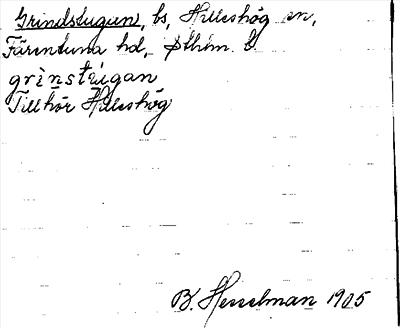 Grindstugan, bs, Hilleshög sn,
Färentuna hd, Sthlm. l.
grinstùgan
Tillhör Hilleshög
B. Hesselman 1905